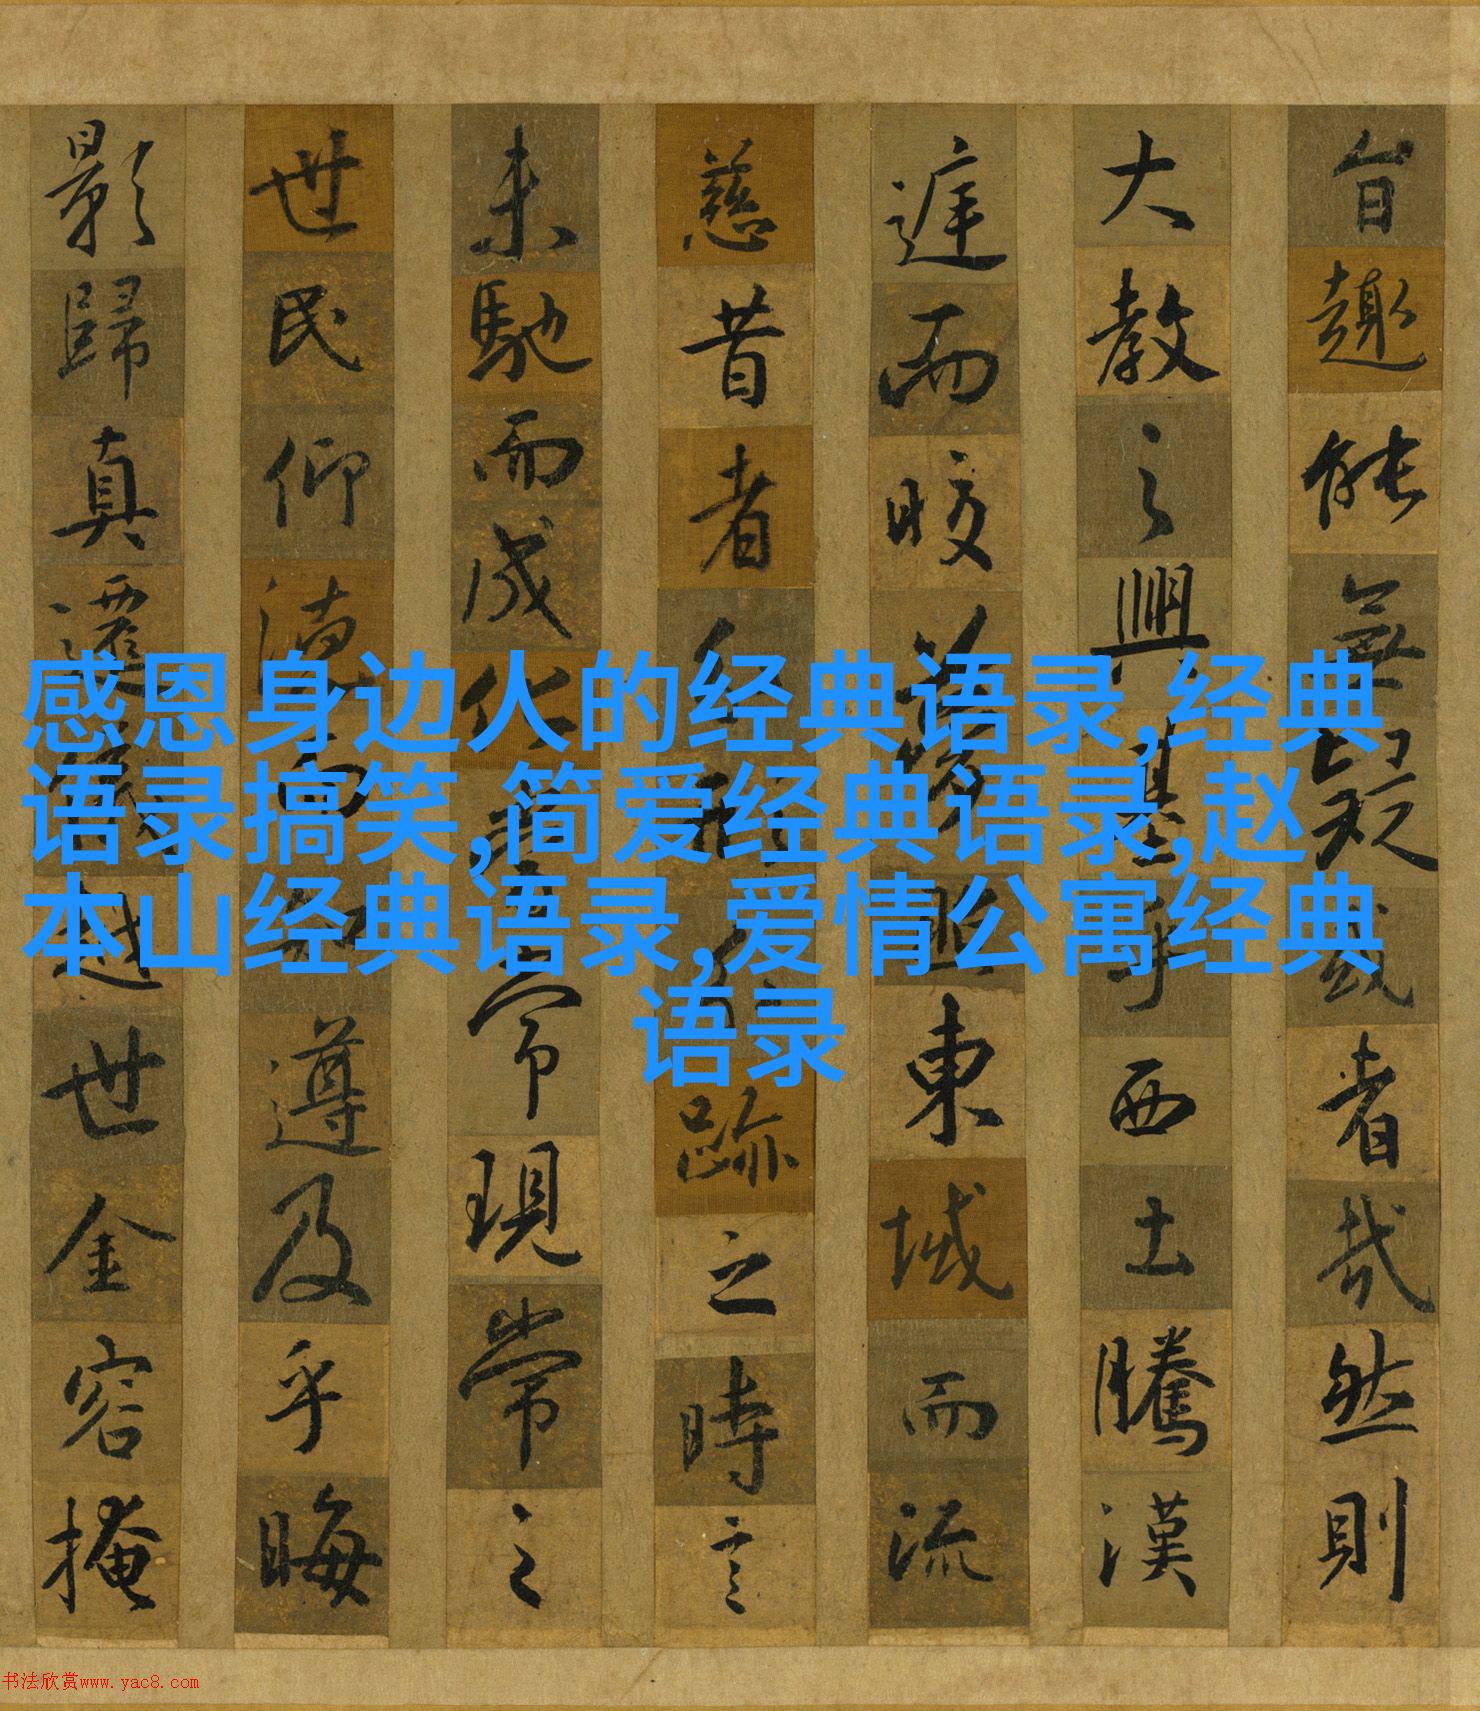 旨趣能無疑惑者哉然則
大教之興基乎西土騰漢
庭而皎夢照東域而流
慈昔者分形分跡之時言
未馳而成化當常現常之
世民仰德而知遵及乎晦
影歸真遷儀越世金容掩
感恩身边人的经典语录,经典
语录搞笑,简爱经典语录,赵
本山经典语录,爱情公寓经典
语录
书法欣赏www.yac8.com